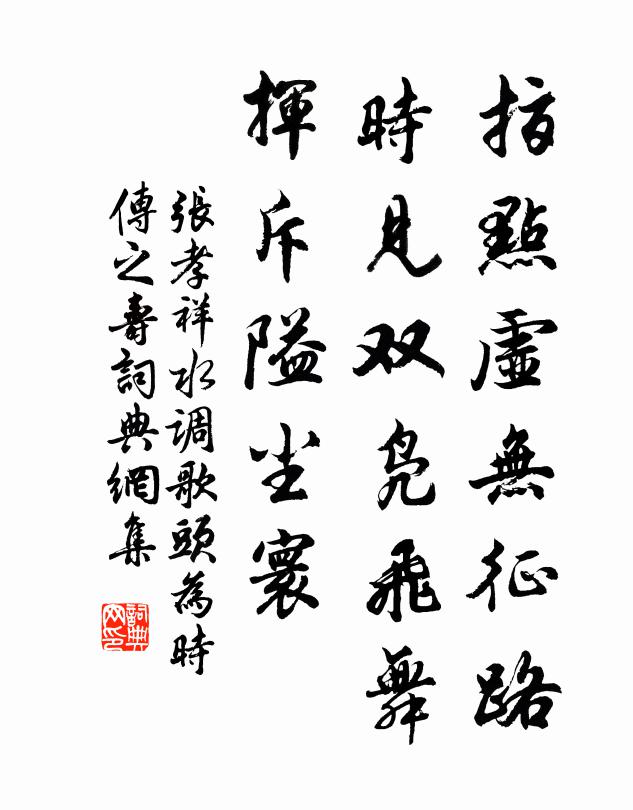 指點虛無征路
時見双鳧飛舞
揮斥隘尘寰
張孝祥水调歌頭為時
傳之壽詞典網集
詞典网印